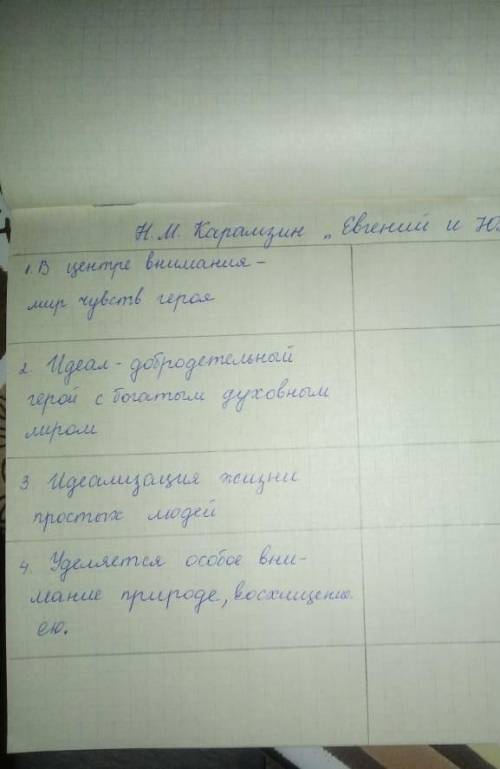 Н.М. Карамзин „Евгений и Ю
1. В центре внимания –
мир чувств героя
2. Идеал - добродетельный
герой с богатым духовным
миром
3. Идеализация жизни
простых людей
4. Уделяется особое вни-
мание природе, восхищение
ею.